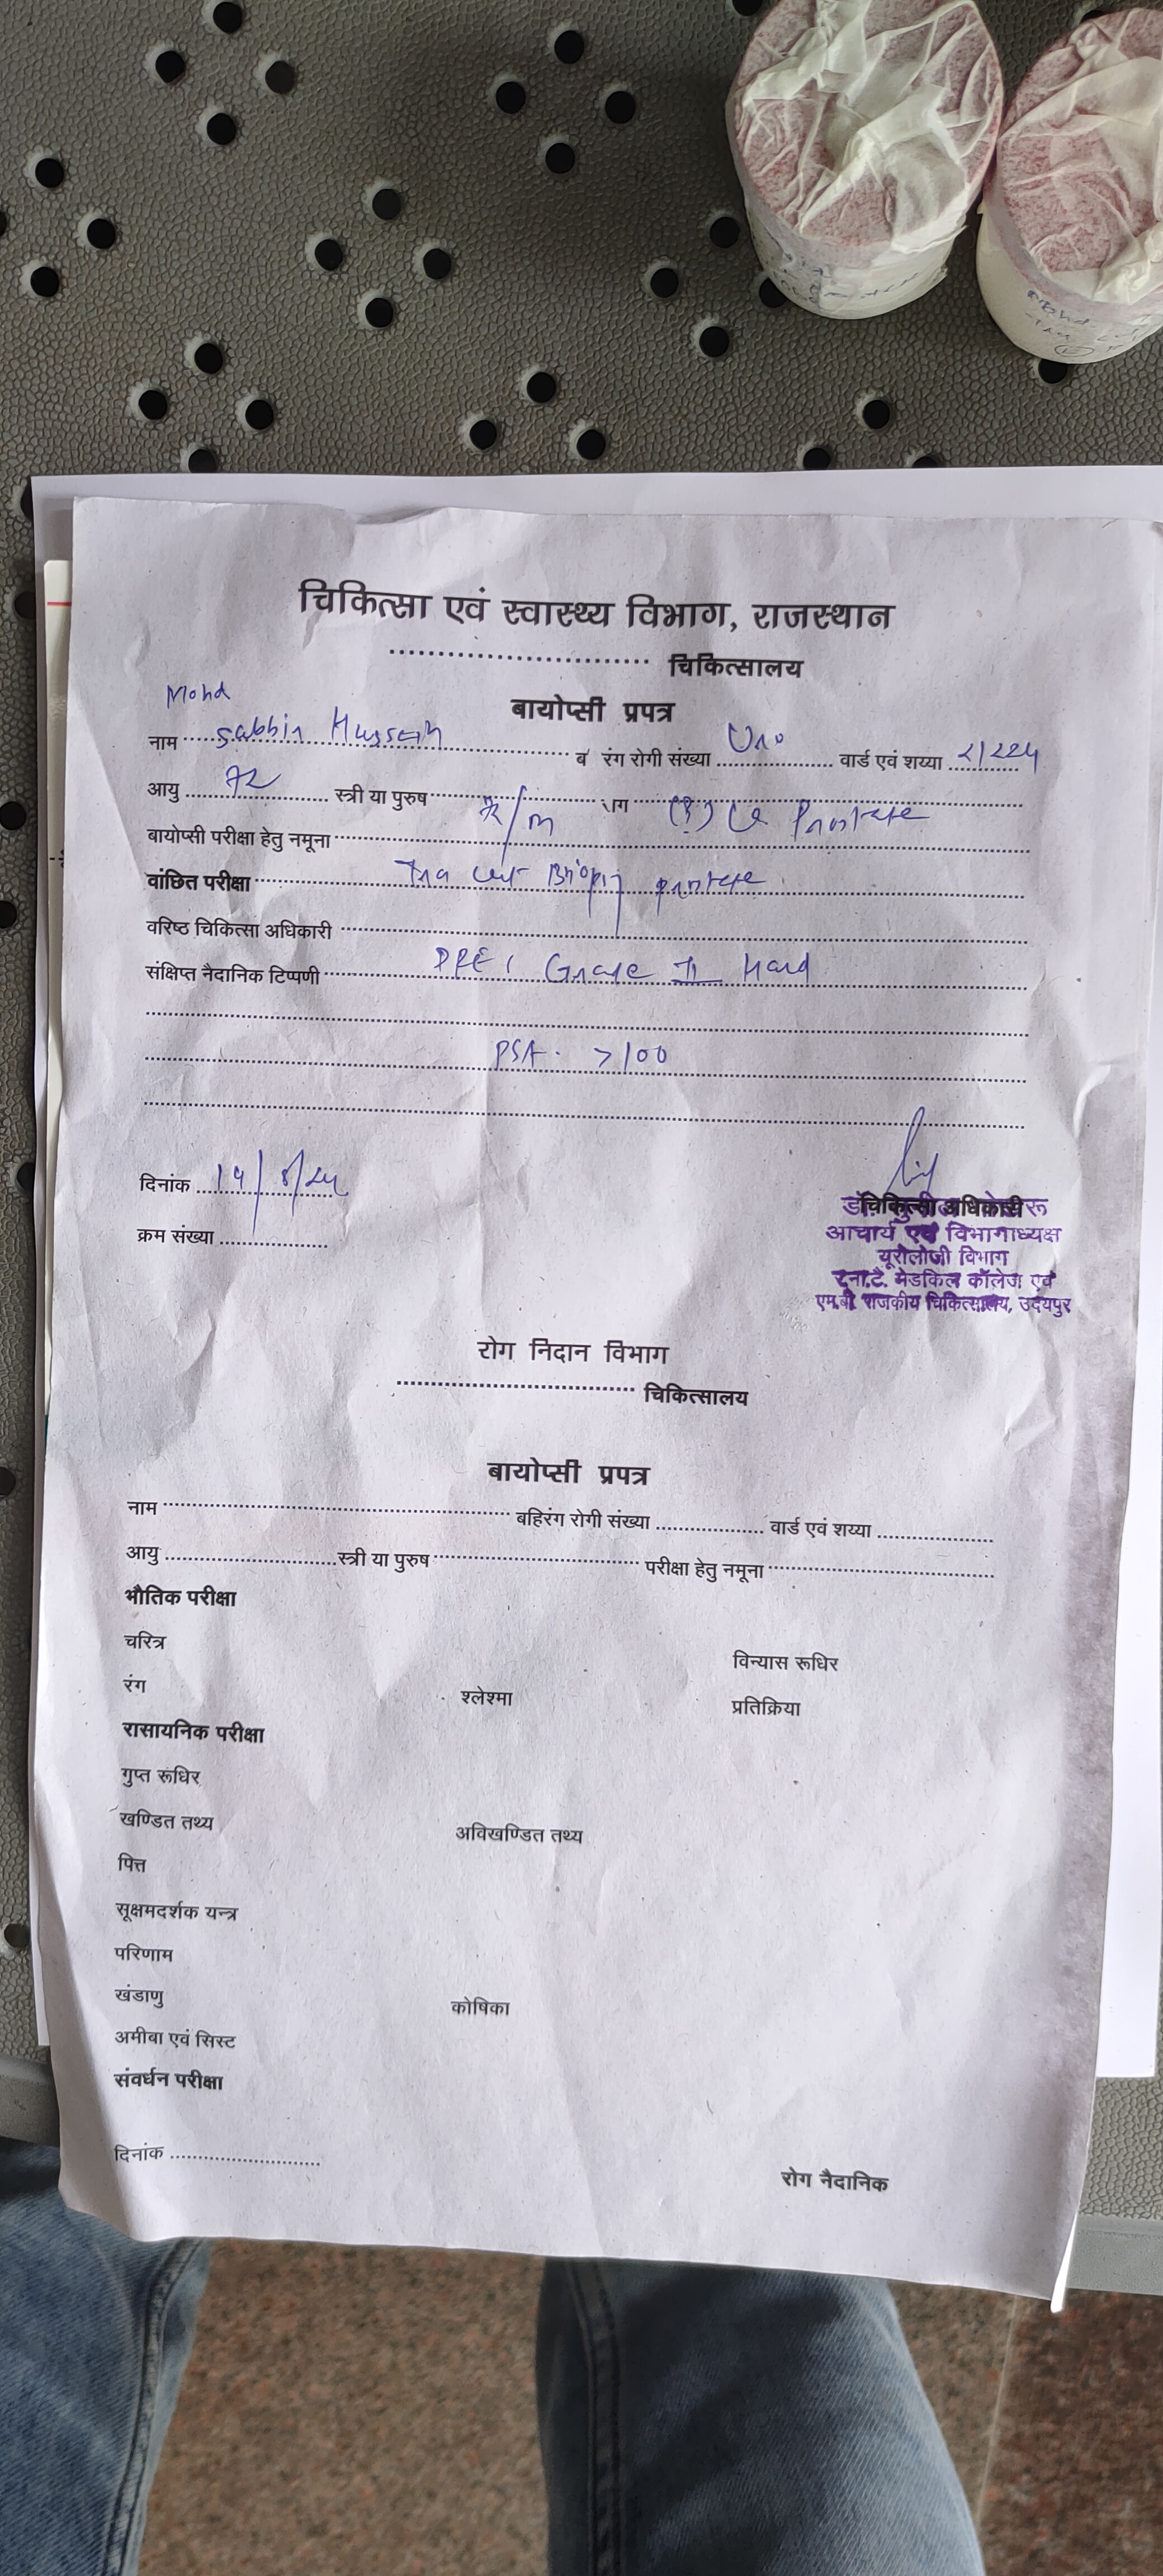 चिकित्सा एवं स्वास्थ्य विभाग, राजस्थान
........................... चिकित्सालय
बायोप्सी प्रपत्र
Mohd
नाम Sabbir Hussain ब रंग रोगी संख्या Uro वार्ड एवं शय्या
आयु 72 स्त्री या पुरुष 72/m ग (?) Ca Prostate
बायोप्सी परीक्षा हेतु नमूना
वांछित परीक्षा Tru cut Biopsy prostate
वरिष्ठ चिकित्सा अधिकारी
संक्षिप्त नैदानिक टिप्पणी DRE: Grade II Hard
PSA. >100
दिनांक
क्रम संख्या
चिकित्सा अधिकारी
आचार्य एवं विभागाध्यक्ष
यूरोलोजी विभाग
मेडकिल कॉलेज एवं
एम.बी. राजकीय चिकित्सालय, उदयपुर
रोग निदान विभाग
........................... चिकित्सालय
बायोप्सी प्रपत्र
नाम बहिरंग रोगी संख्या वार्ड एवं शय्या
आयु स्त्री या पुरुष परीक्षा हेतु नमूना
भौतिक परीक्षा
चरित्र विन्यास रूधिर
रंग श्लेश्मा प्रतिक्रिया
रासायनिक परीक्षा
गुप्त रूधिर
खण्डित तथ्य अविखण्डित तथ्य
पित्त
सूक्षमदर्शक यन्त्र
परिणाम
खंडाणु कोषिका
अमीबा एवं सिस्ट
संवर्धन परीक्षा
दिनांक
रोग नैदानिक